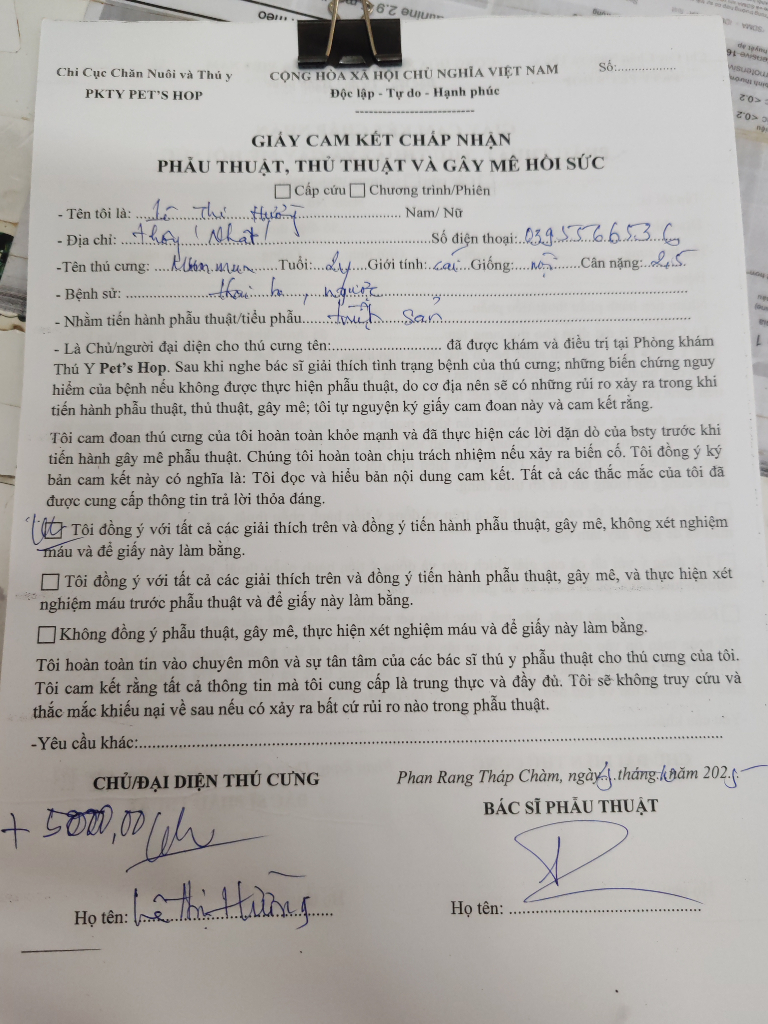 Chi Cục Chăn Nuôi và Thú y CỘNG HÒA XÃ HỘI CHỦ NGHĨA VIỆT NAM Số:................
PKTY PET'S HOP Độc lập - Tự do - Hạnh phúc
-------------------------
GIẤY CAM KẾT CHẤP NHẬN
PHẪU THUẬT, THỦ THUẬT VÀ GÂY MÊ HỒI SỨC
Cấp cứu Chương trình/Phiên
- Tên tôi là: Lê Thị Hường Nam/ Nữ
- Địa chỉ: Số điện thoại: 0395556653
-Tên thú cưng: Mun mun Tuổi: 2y Giới tính: cái Giống: nội Cân nặng: 2,5
- Bệnh sử:
- Nhằm tiến hành phẫu thuật/tiểu phẫu triệt sản
- Là Chủ/người đại diện cho thú cưng tên:........................ đã được khám và điều trị tại Phòng khám
Thú Y Pet's Hop. Sau khi nghe bác sĩ giải thích tình trạng bệnh của thú cưng; những biến chứng nguy
hiểm của bệnh nếu không được thực hiện phẫu thuật, do cơ địa nên sẽ có những rủi ro xảy ra trong khi
tiến hành phẫu thuật, thủ thuật, gây mê; tôi tự nguyện ký giấy cam đoan này và cam kết rằng.
Tôi cam đoan thú cưng của tôi hoàn toàn khỏe mạnh và đã thực hiện các lời dặn dò của bsty trước khi
tiến hành gây mê phẫu thuật. Chúng tôi hoàn toàn chịu trách nhiệm nếu xảy ra biến cố. Tôi đồng ý ký
bản cam kết này có nghĩa là: Tôi đọc và hiểu bản nội dung cam kết. Tất cả các thắc mắc của tôi đã
được cung cấp thông tin trả lời thỏa đáng.
Tôi đồng ý với tất cả các giải thích trên và đồng ý tiến hành phẫu thuật, gây mê, không xét nghiệm
máu và để giấy này làm bằng.
Tôi đồng ý với tất cả các giải thích trên và đồng ý tiến hành phẫu thuật, gây mê, và thực hiện xét
nghiệm máu trước phẫu thuật và để giấy này làm bằng.
Không đồng ý phẫu thuật, gây mê, thực hiện xét nghiệm máu và để giấy này làm bằng.
Tôi hoàn toàn tin vào chuyên môn và sự tân tâm của các bác sĩ thú y phẫu thuật cho thú cưng của tôi.
Tôi cam kết rằng tất cả thông tin mà tôi cung cấp là trung thực và đầy đủ. Tôi sẽ không truy cứu và
thắc mắc khiếu nại về sau nếu có xảy ra bất cứ rủi ro nào trong phẫu thuật.
-Yêu cầu khác:
CHỦ/ĐẠI DIỆN THÚ CƯNG Phan Rang Tháp Chàm, ngày tháng 10 năm 2025
BÁC SĨ PHẪU THUẬT
Họ tên: Lê Thị Hường Họ tên: